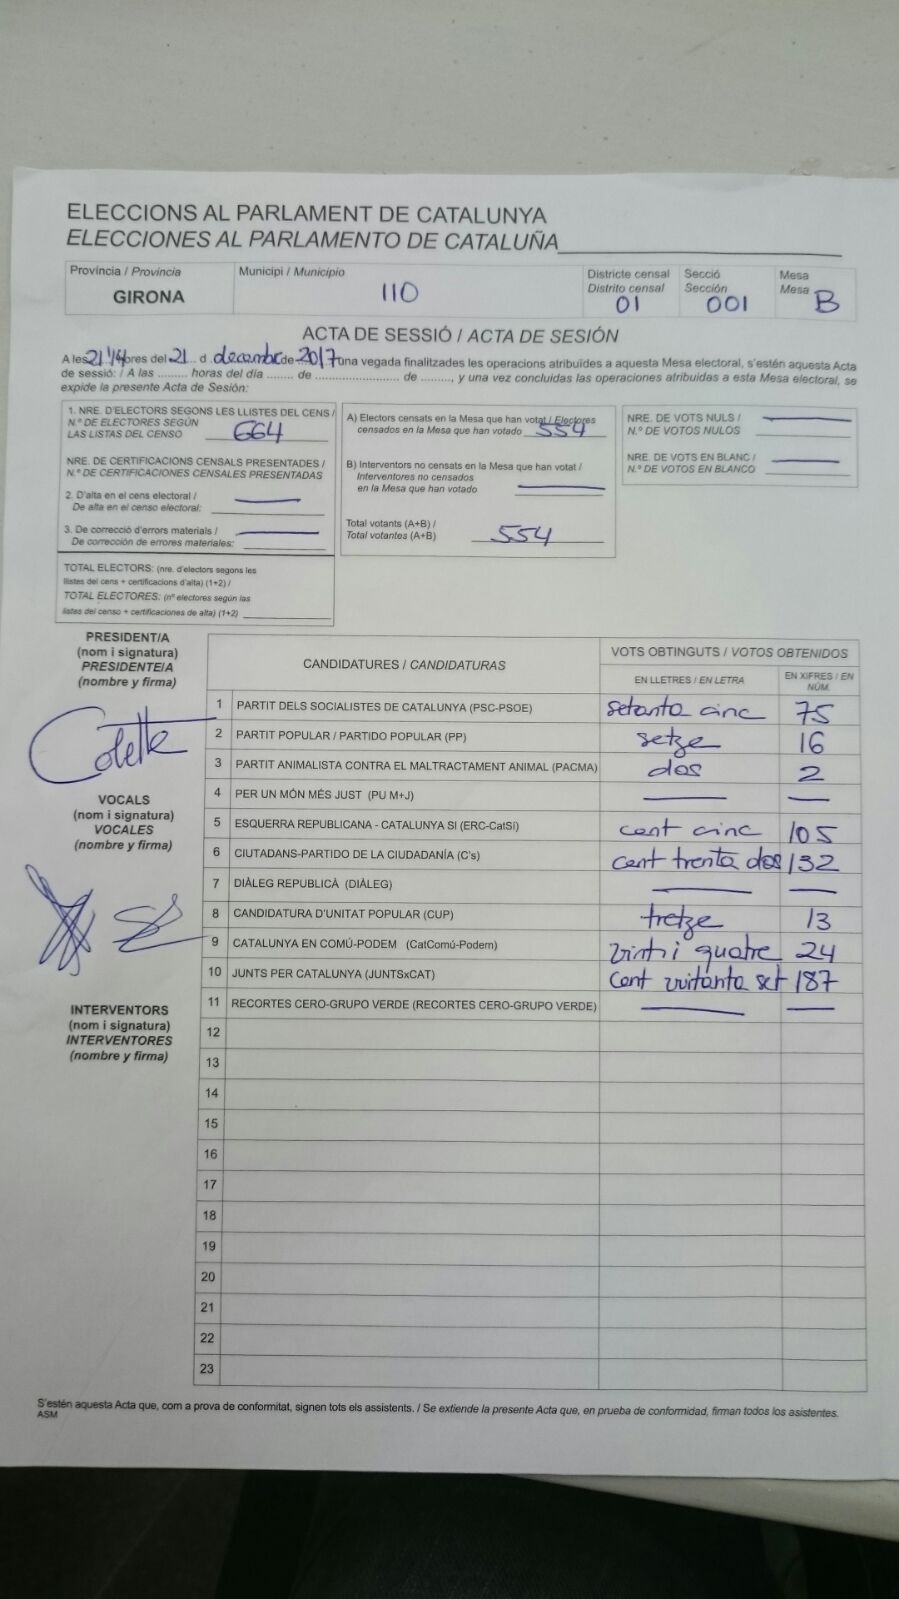 ELECCIONS AL PARLAMENT DE CATALUNYA
ELECCIONES AL PARLAMENTO DE CATALUÑA
Província / Provincia
GIRONA
Municipi / Municipio
110
Districte censal
Distrito censal
01
Secció
Sección
001
Mesa
Mesa
B
ACTA DE SESSIÓ / ACTA DE SESIÓN
A les 21'14 hores del 21 d decembr de 2017 una vegada finalitzades les operacions atribuïdes a aquesta Mesa electoral, s'estén aquesta Acta
de sessió: / A las ......... horas del día ........ de ........................ de ........, y una vez concluidas las operaciones atribuidas a esta Mesa electoral, se
expide la presente Acta de Sesión:
1. NRE. D'ELECTORS SEGONS LES LLISTES DEL CENS /
N.º DE ELECTORES SEGÚN
LAS LISTAS DEL CENSO 664
NRE. DE CERTIFICACIONS CENSALS PRESENTADES /
N.º DE CERTIFICACIONES CENSALES PRESENTADAS
2. D'alta en el cens electoral /
De alta en el censo electoral:
3. De correcció d'errors materials /
De corrección de errores materiales:
TOTAL ELECTORS: (nre. d'electors segons les
llistes del cens + certificacions d'alta) (1+2) /
TOTAL ELECTORES: (nº electores según las
listas del censo + certificaciones de alta) (1+2)
A) Electors censats en la Mesa que han votat / Electores
censados en la Mesa que han votado 554
B) Interventors no censats en la Mesa que han votat /
Interventores no censados
en la Mesa que han votado
Total votants (A+B) /
Total votantes (A+B) 554
NRE. DE VOTS NULS /
N.º DE VOTOS NULOS
NRE. DE VOTS EN BLANC /
N.º DE VOTOS EN BLANCO
PRESIDENT/A
(nom i signatura)
PRESIDENTE/A
(nombre y firma)
Colette
VOCALS
(nom i signatura)
VOCALES
(nombre y firma)
INTERVENTORS
(nom i signatura)
INTERVENTORES
(nombre y firma)
CANDIDATURES / CANDIDATURAS
VOTS OBTINGUTS / VOTOS OBTENIDOS
EN LLETRES / EN LETRA
EN XIFRES / EN
NÚM.
1 PARTIT DELS SOCIALISTES DE CATALUNYA (PSC-PSOE) setanta cinc 75
2 PARTIT POPULAR / PARTIDO POPULAR (PP) setze 16
3 PARTIT ANIMALISTA CONTRA EL MALTRACTAMENT ANIMAL (PACMA) dos 2
4 PER UN MÓN MÉS JUST (PU M+J)
5 ESQUERRA REPUBLICANA - CATALUNYA SI (ERC-CatSí) cent cinc 105
6 CIUTADANS-PARTIDO DE LA CIUDADANÍA (C's) cent trenta dos 132
7 DIÀLEG REPUBLICÀ (DIÀLEG)
8 CANDIDATURA D'UNITAT POPULAR (CUP) tretze 13
9 CATALUNYA EN COMÚ-PODEM (CatComú-Podem) vint i quatre 24
10 JUNTS PER CATALUNYA (JUNTSxCAT) cent vuitanta set 187
11 RECORTES CERO-GRUPO VERDE (RECORTES CERO-GRUPO VERDE)
12
13
14
15
16
17
18
19
20
21
22
23
S'estén aquesta Acta que, com a prova de conformitat, signen tots els assistents. / Se extiende la presente Acta que, en prueba de conformidad, firman todos los asistentes.
ASM